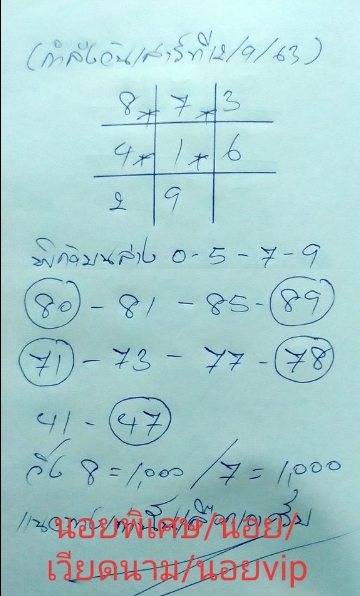 (กำลังวันเสาร์ที่12/9/63)
8 * 7 * 3
4 * 1 * 6
2 9
บน ล่าง 0-5-7-9
80 - 81 - 85 - 89
71 - 73 - 77 - 78
41 - 47
วิ่ง 8=1,000 / 7=1,000
นอยพิเศษ/นอย/
เวียดนาม/นอยvip